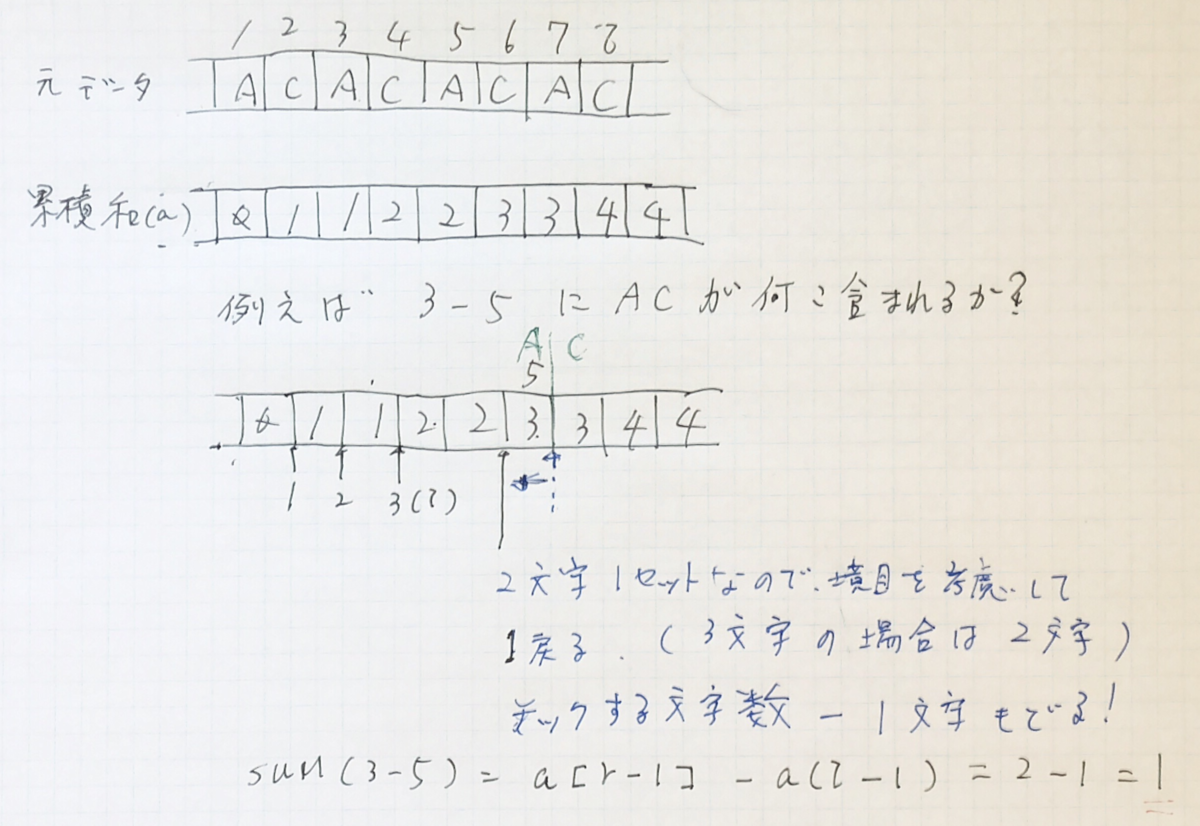 1 2 3 4 5 6 7 8
元データ A C A C A C A C
累積和(a) 0 1 1 2 2 3 3 4 4
例えば 3-5 に AC が何こ含まれるか?
A C
5
0 1 1 2 2 3 3 4 4
1 2 3(l)
2文字1セットなので、境目を考慮して
1戻る. (3文字の場合は2文字)
する文字数 - 1文字もどる!
sum(3-5) = a[r-1] - a(l-1) = 2-1 = 1